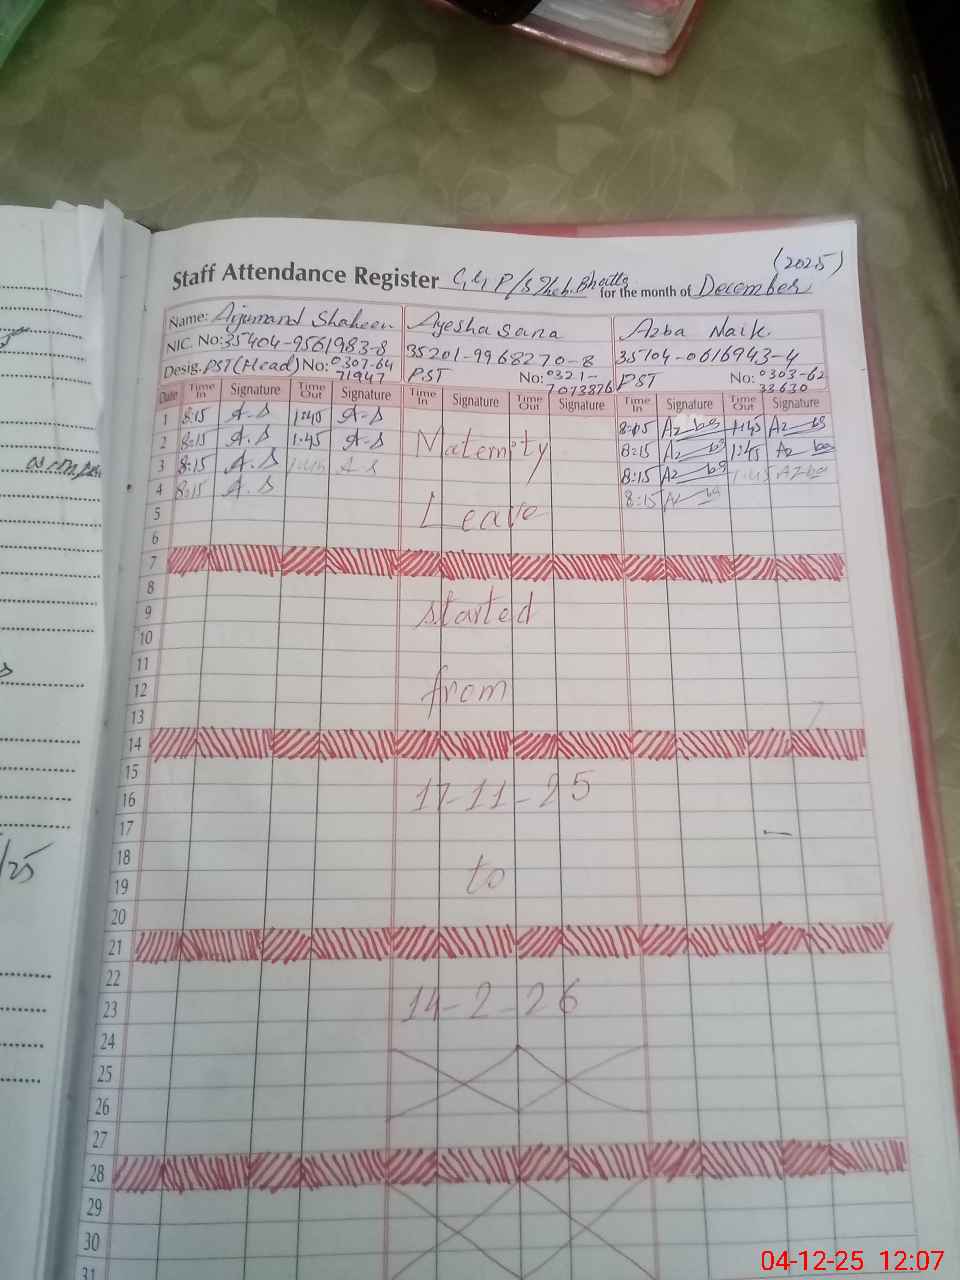 (2025)
Staff Attendance Register G.G P/S for the month of December
Name: Arjumand Shaheen Ayesha sana Azba Naik
NIC. No: 35404-9561983-8 35201-9968270-8 35104-0616943-4
Desig. PST (Head) No: 0307-6471947 PST No: 0321-7073876 PST No: 0303-6233630
Date Time In Signature Time Out Signature Time In Signature Time Out Signature Time In Signature Time Out Signature
1 8:15 A.S 1:45 A-S 8:15 Azba 1:45 Azba
2 8:15 A.S 1.45 A-S Maternity 8:15 Azba 1:45 Azba
3 8:15 A.S 1:45 A S 8:15 Azba 1:45 Azba
4 8:15 A.S 8:15 Azba
5 Leave
6
7
8
9 started
10
11
12 from
13
14
15
16 17-11-25
17
18
19 to
20
21
22
23 14-2-26
24
25
26
27
28
29
30
31
/25
04-12-25 12:07